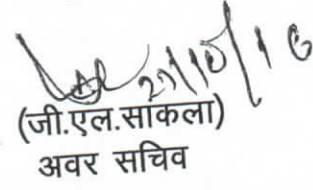 27/10/16
(जी.एल.साकला)
अवर सचिव